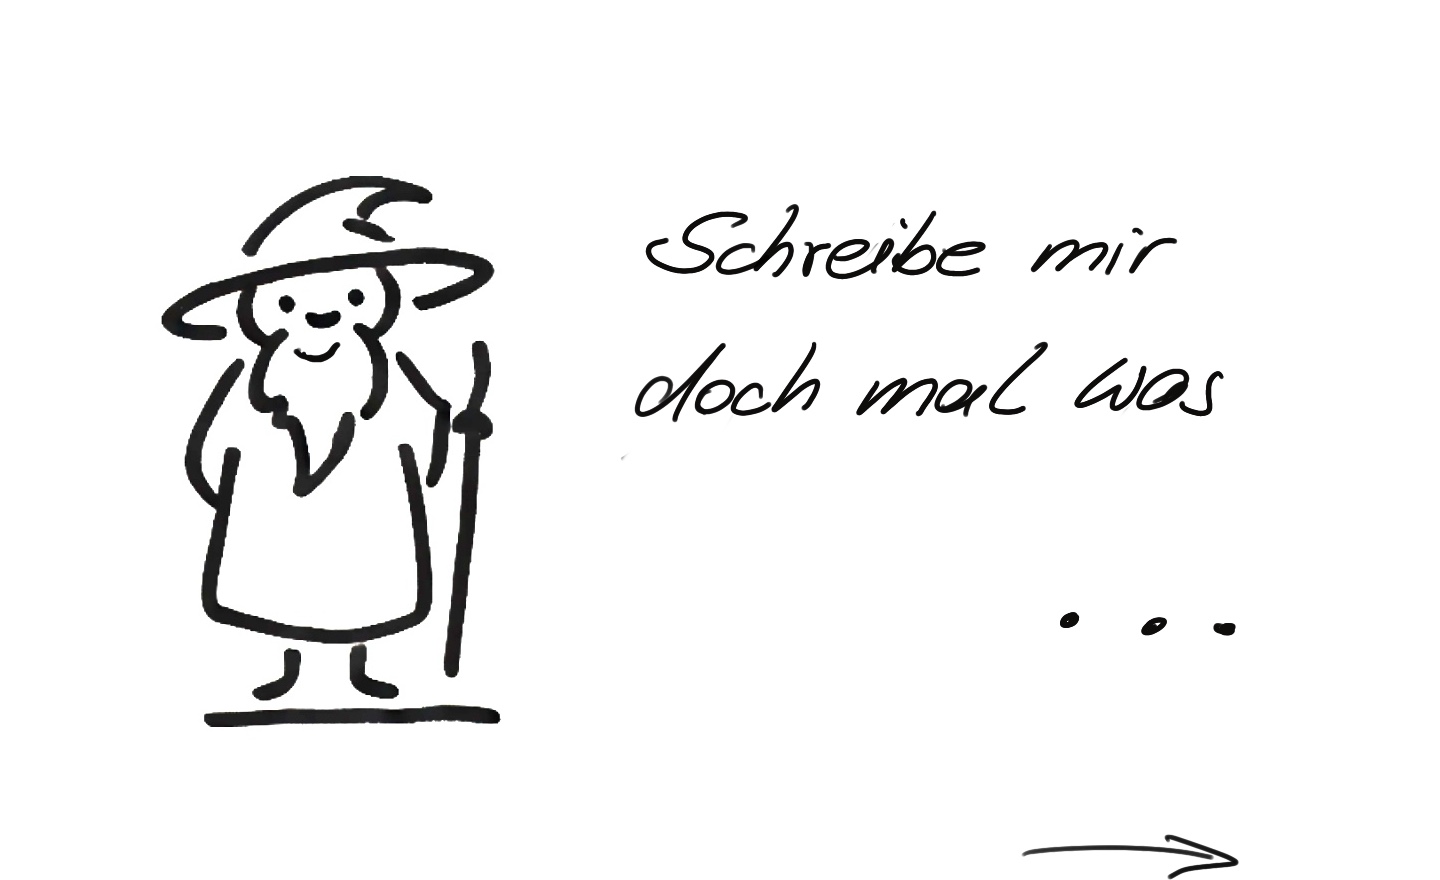 Schreibe mir
doch mal was
...